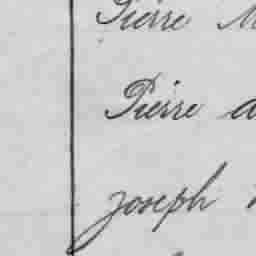 Pierre M
Pierre a
Joseph